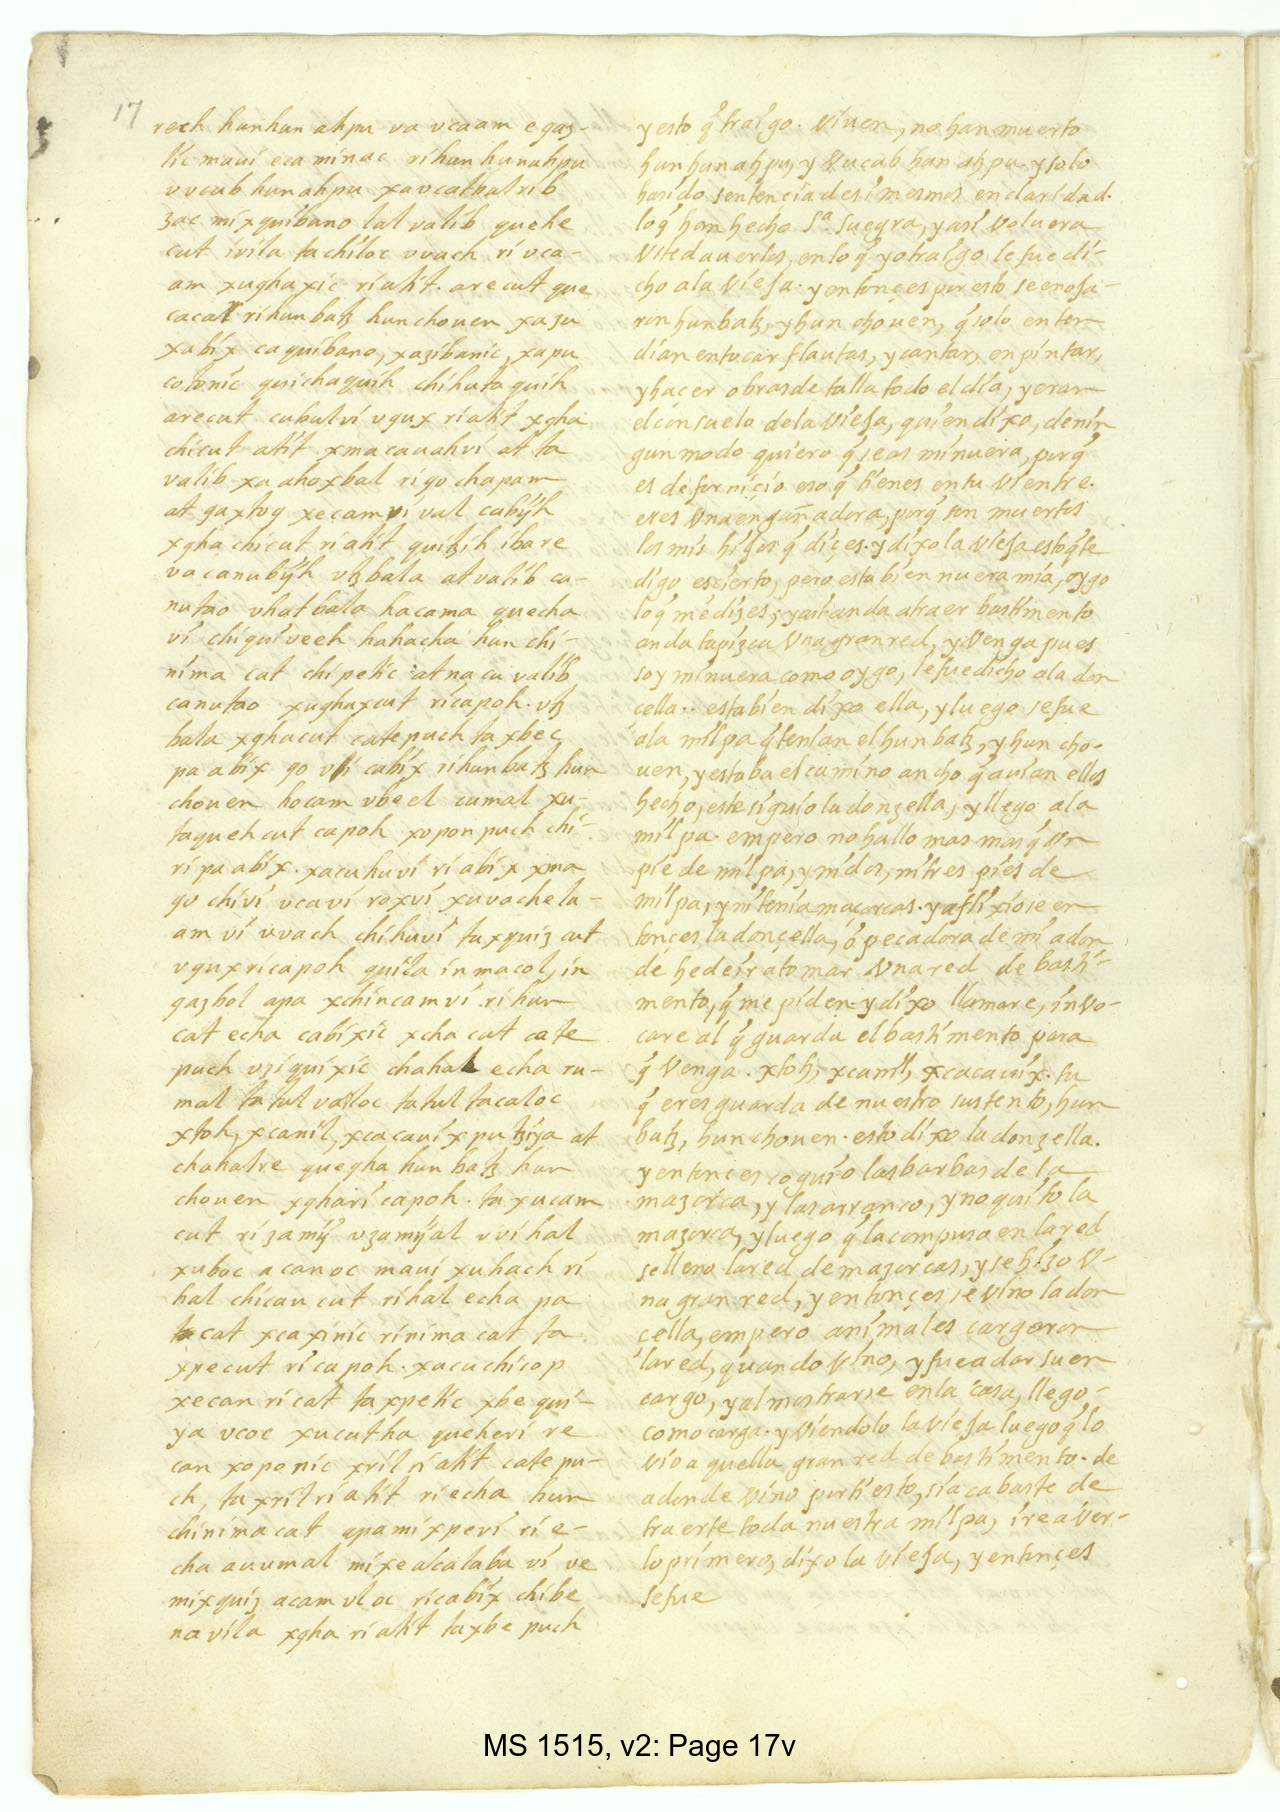 17
rech hunhun ahpu va vcaam e qaz-
lic maui ecaminac ri hun hunahpu
vvcub hunahpu xa vcatbal rib
zac mixquibano lal valib quehe
cut ivila tachiloc vvach ri vca-
am xughaxic ri atit. are cut que
cacal ri hunbatz hunchouen xa zu
xabix caquibano, xa tzibanic, xa pu
cotonic quichaquih chihuta quih
are cut cubulvi vqux ri atit xgha
chicut atit xma cauahvi at ta
valib xa ahoxbal ri go chapam
at qaxtog xecamvi val cabijh
xgha chicut ri atit quitzih ibare
va canubijh vtzbala at valib ca-
nutao vhatbala hacama quecha
vi chiquiveeh hahacha hun chi-
nima cat chipetic at na cu valib
canutao xughaxcut ri capoh. vtz
bala xghacut catepuch ta xbec
pa abix go vi cabix ri hunbatz hun
chouen hocam vbeel cumal xu-
taqueh cut capoh xopon puch chi-
ri pa abix. xacuhuvi ri abix xma
go chivi vcavi roxvi xuvachela-
am vi vvach chihuvi ta xquiz cut
vqux ri capoh quita in macol, in
gazbol apa xchincamvi ri hun
cat echa cabixic xcha cut cate
puch vziquixic chahal echa ru-
mal ta tul valoc ta tul tacaloc
xtoh, xcanil, xcacauix pu tziya at
chahalre quegha hunbatz hun
chouen xghari capoh. ta xucam
cut ri zamij vzamijal vvi hal
xuboc acanoc maui xuhach ri
hal chicau cut ri hal echa pa
cat xcaxinic ri nima cat ta
xpecut ri capoh. xacu chicop
xecan ri cat ta xpetic xbe qui-
ya vcoc xucutha queheri re
can xoponic xril ri atit catepu-
ch, ta xril ri atit ri echa hun
chinima cat apa mixpevi ri e-
cha auumal mixeacalaba vi ve
mixquiz acam vloc ri cabix chibe
na vila xgha ri atit ta xbe puch
y esto q̃ traigo. Viuen, no han muerto
hunhunahpu, y Vucub hun ahpu. y solo
ha sido sentencia de si mesmos en claridad.
lo q̃ han hecho Sa. suegra, y asi Voluera
Vsted a uerlos, en lo q̃ yo traigo le fue di-
cho a la Vieja. y entonçes por esto se enoja-
ron hunbatz, y hun chouen, q̃ solo enten
dian en tocar flautas, y cantar, en pintar,
y hacer obras de talla todo el dia, y eran
el consuelo de la Vieja, quien dixo, de nin
gun modo quiero q̃ seas mi nuera, porq̃
es de forniçio eso q̃ tienes en tu vientre.
eres Vna engañadora, porq̃ son muertos
los mis hijos q̃ diçes. y dixo la vieja esto q̃ te
digo es cierto, pero esta bien nuera mia, oygo
lo q̃ me dizes, y asi anda a traer bastimento
anda tapizca Vna gran red, y Venga pues
soy mi nuera como oygo, le fue dicho a la don
cella.. esta bien dixo ella, y luego se fue
a la milpa q̃ tenian el hun batz, y hun cho-
uen, y estaba el camino ancho q̃ auian ellos
hecho, este siguio la donzella, y llego a la
milpa. empero no hallo mas mas q̃ un
pie de milpa, y ni dos, ni tres pies de
milpa, y ni tenia maçorcas. y aflixiose en
tonces la donçella, o pecadora de mi adon
de he de ir a tomar Vna red de basti-
mento, q̃ me piden y dixo llamare, inVo-
care al q̃ guarda el bastimento para
q̃ Venga. xtoh, xcanil, xcacauix. tu
q̃ eres guarda de nuestro sustento, hun
batz, hun chouen. esto dixo la donzella.
y entonces cogio las barbas de la
mazorca, y las arranco, y no quito la
mazorca, y luego q̃ la compuso en la red
se lleno la red de mazorcas, y se hizo V-
na gran red, y entonçes se vino la don
çella, empero animales cargaron
la red, quando Vino, y fue a dar su en
cargo, y al mostrarse en la casa, llego-
como carga. y Viendolo la vieja luego q̃ lo
vio aquella gran red de bastimento. de
adonde Vino por ti esto, si acabaste de
traerte toda nuestra milpa, ire a ver-
lo primero, dixo la vieja, y entonçes
se fue
MS 1515, v2: Page 17v